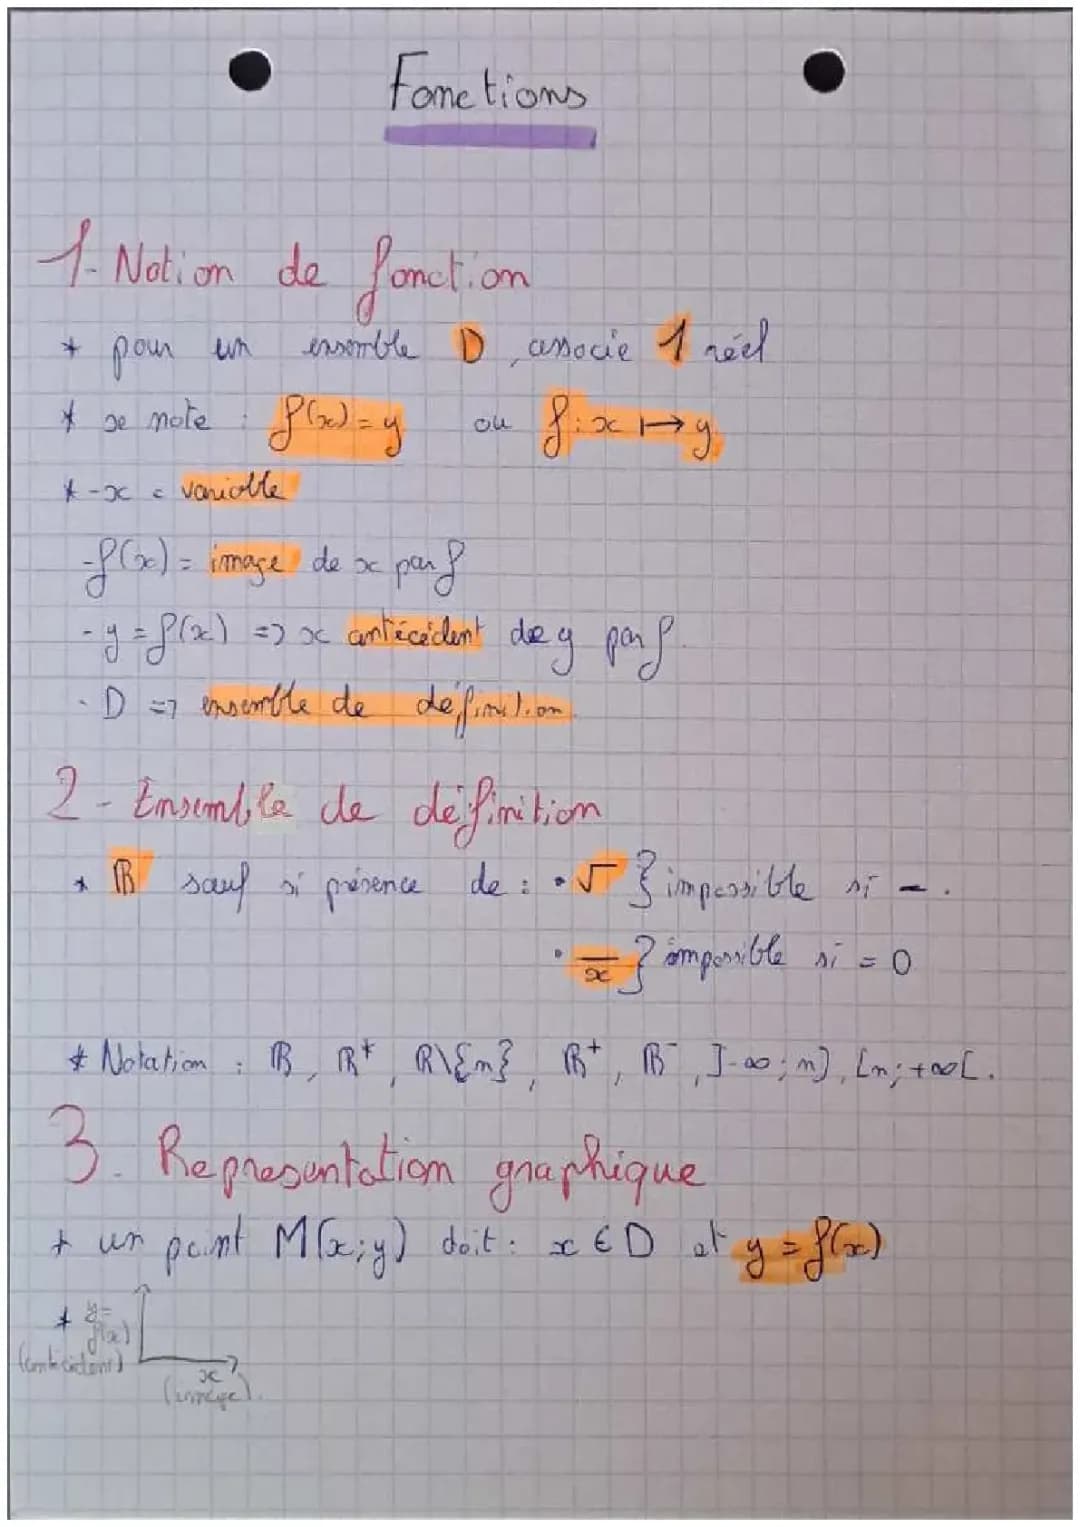 Fonctions
1- Notion de fonction
* pour un ensemble D, associe 1 réel
* se note : f(x) = y ou f : x ↦ y.
* - x = variable
- f(x) = image de x par f
- y = f(x) => x antécédent de y par f.
- D => ensemble de définition.
2 - Ensemble de définition
* ℝ sauf si présence de : • √ } impossible si - .
• —/x } impossible si = 0
* Notation : ℝ, ℝ*, ℝ\{n}, ℝ⁺, ℝ⁻, ]-∞; n], [n; +∞[.
3. Representation graphique
* un point M(x;y) doit : x ∈ D et y = f(x)
* y =
f(x)
(antécédent)
x
(image).